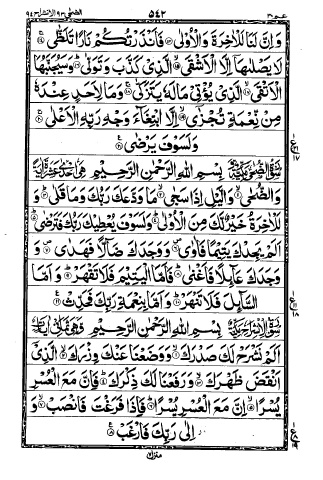 عم ٣٠ ٥٤٢ الضحى ٩٣ الانشراح ٩٤
وَاِنَّ لَنَا لَلْاٰخِرَةَ وَالْاُوْلٰى ١٣ فَاَنْذَرْتُكُمْ نَارًا تَلَظّٰى ١٤
لَا يَصْلٰىهَا اِلَّا الْاَشْقَى ١٥ الَّذِیْ كَذَّبَ وَتَوَلّٰى ١٦ وَسَيُجَنَّبُهَا
الْاَتْقَى ١٧ الَّذِیْ يُؤْتِیْ مَالَهٗ يَتَزَكّٰى ١٨ وَمَا لِاَحَدٍ عِنْدَهٗ
مِنْ نِّعْمَةٍ تُجْزٰٓى ١٩ اِلَّا ابْتِغَآءَ وَجْهِ رَبِّهِ الْاَعْلٰى ٢٠
وَلَسَوْفَ يَرْضٰى ٢١
بِسْمِ اللهِ الرَّحْمٰنِ الرَّحِيْمِ
وَالضُّحٰى ١ وَالَّيْلِ اِذَا سَجٰى ٢ مَا وَدَّعَكَ رَبُّكَ وَمَا قَلٰى ٣ وَ
لَلْاٰخِرَةُ خَيْرٌ لَّكَ مِنَ الْاُوْلٰى ٤ وَلَسَوْفَ يُعْطِيْكَ رَبُّكَ فَتَرْضٰى ٥
اَلَمْ يَجِدْكَ يَتِيْمًا فَاٰوٰى ٦ وَوَجَدَكَ ضَآلًّا فَهَدٰى ٧ وَ
وَجَدَكَ عَآئِلًا فَاَغْنٰى ٨ فَاَمَّا الْيَتِيْمَ فَلَا تَقْهَرْ ٩ وَاَمَّا
السَّآئِلَ فَلَا تَنْهَرْ ١٠ وَاَمَّا بِنِعْمَةِ رَبِّكَ فَحَدِّثْ ١١
بِسْمِ اللهِ الرَّحْمٰنِ الرَّحِيْمِ
اَلَمْ نَشْرَحْ لَكَ صَدْرَكَ ١ وَوَضَعْنَا عَنْكَ وِزْرَكَ ٢ الَّذِیْٓ
اَنْقَضَ ظَهْرَكَ ٣ وَرَفَعْنَا لَكَ ذِكْرَكَ ٤ فَاِنَّ مَعَ الْعُسْرِ
يُسْرًا ٥ اِنَّ مَعَ الْعُسْرِ يُسْرًا ٦ فَاِذَا فَرَغْتَ فَانْصَبْ ٧ وَ
اِلٰى رَبِّكَ فَارْغَبْ ٨